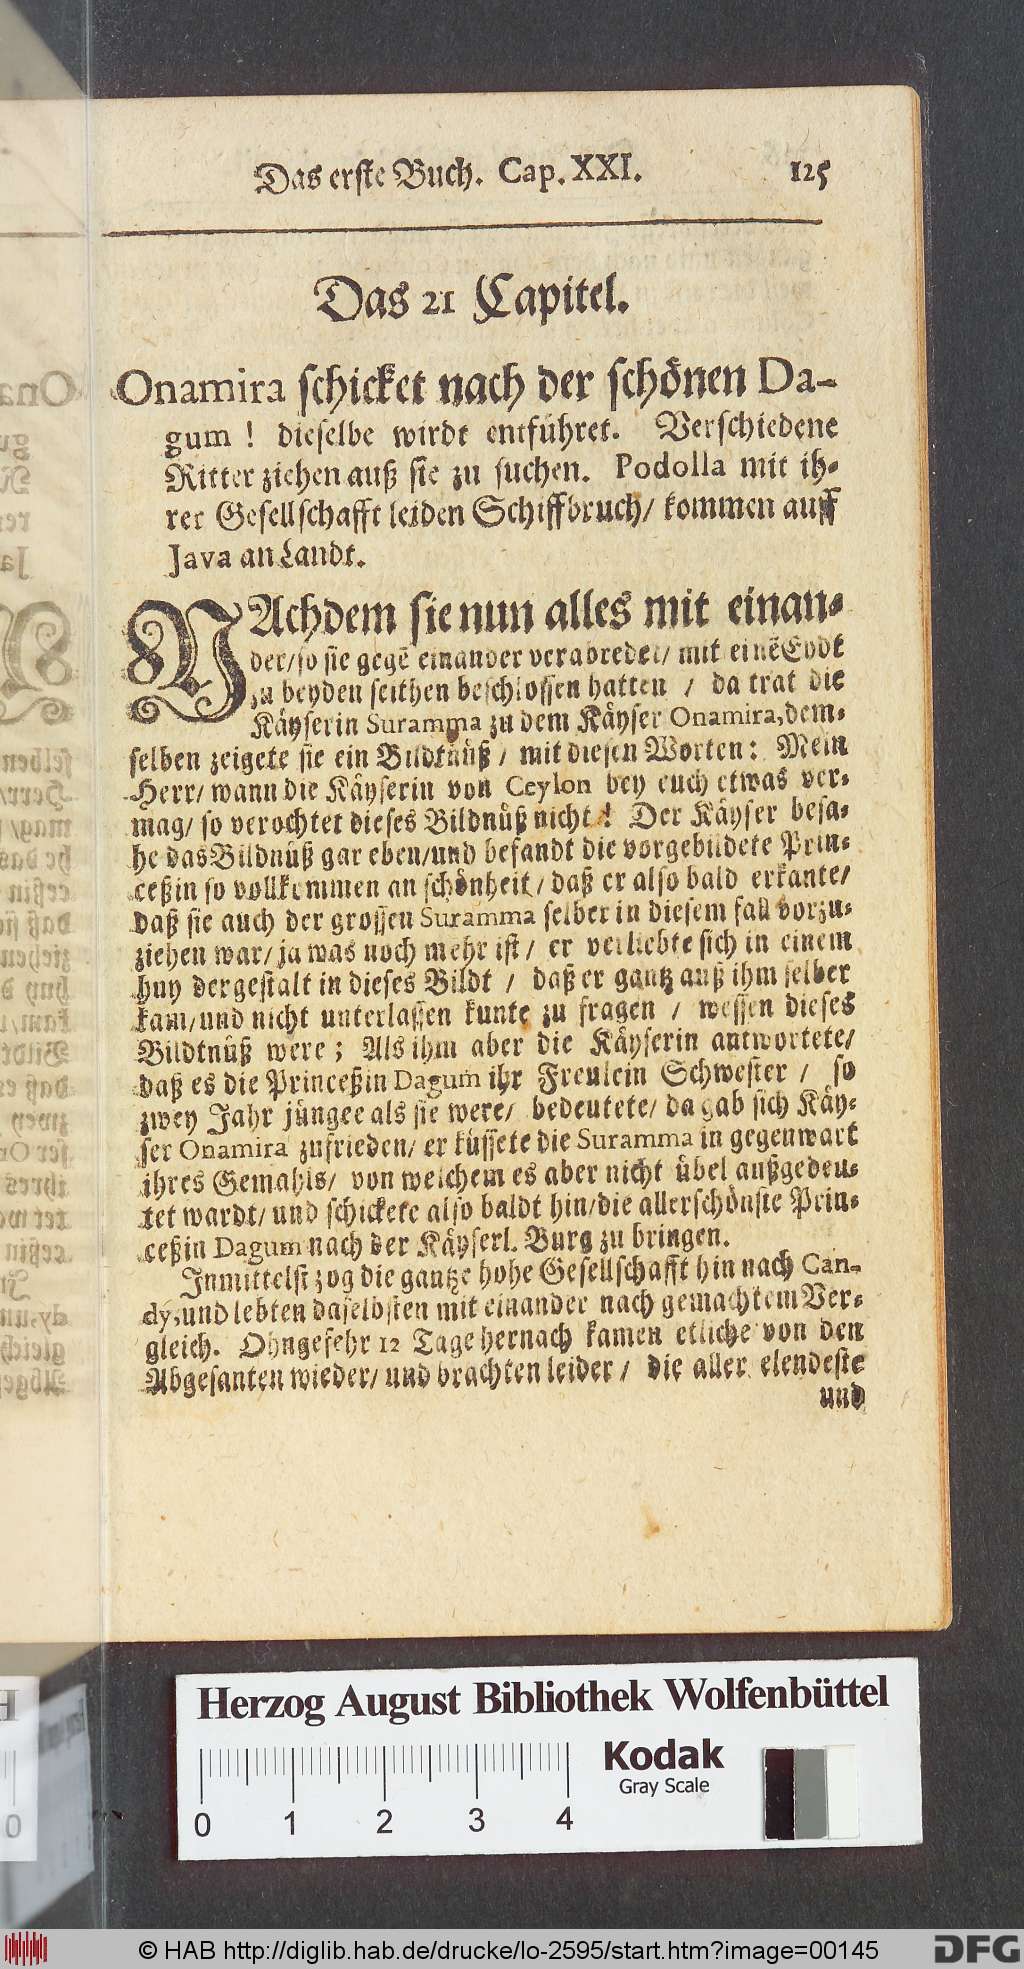 Das erste Buch. Cap. XXI. 125
Das 21 Capitel.
Onamira schicket nach der schönen Da-
gum ! dieselbe wirdt entführet. Verschiedene
Ritter ziehen auß sie zu suchen. Podolla mit ih-
rer Gesellschafft leiden Schiffbruch/ kommen auff
Java an Landt.
NAchdem sie nun alles mit einan-
der/ so sie gegē einander verabredet/ mit einē Eydt
zu beyden seithen beschlossen hatten / da trat die
Käyserin Suramma zu dem Käyser Onamira, dem-
selben zeigete sie ein Bildtnüß / mit diesen Worten: Mein
Herr/ wann die Käyserin von Ceylon bey euch etwas ver-
mag/ so verachtet dieses Bildnüß nicht ! Der Käyser besa-
he das Bildnüß gar eben/ und befandt die vorgebildete Prin-
ceßin so vollkommen an schönheit / daß er also bald erkante/
daß sie auch der grossen Suramma selber in diesem fall vorzu-
ziehen war/ ja was noch mehr ist / er verliebte sich in einem
huy dergestalt in dieses Bildt / daß er gantz auß ihm selber
kam/ und nicht unterlassen kunte zu fragen / wessen dieses
Bildtnüß were ; Als ihm aber die Käyserin antwortete/
daß es die Princeßin Dagum ihr Freulein Schwester / so
zwey Jahr jüngee als sie were/ bedeutete/ da gab sich Käy-
ser Onamira zufrieden/ er küssete die Suramma in gegenwart
ihres Gemahls/ von welchem es aber nicht übel außgedeu-
tet wardt/ und schickete also baldt hin/ die allerschönste Prin-
ceßin Dagum nach der Käyserl. Burg zu bringen.
Inmittelst zog die gantze hohe Gesellschafft hin nach Can-
dy, und lebten daselbsten mit einander nach gemachtem Ver-
gleich. Ohngefehr 12 Tage hernach kamen etliche von den
Abgesanten wieder/ und brachten leider / die aller elendeste
und
Herzog August Bibliothek Wolfenbüttel
Kodak
Gray Scale
0 1 2 3 4
© HAB http://diglib.hab.de/drucke/lo-2595/start.htm?image=00145
DFG